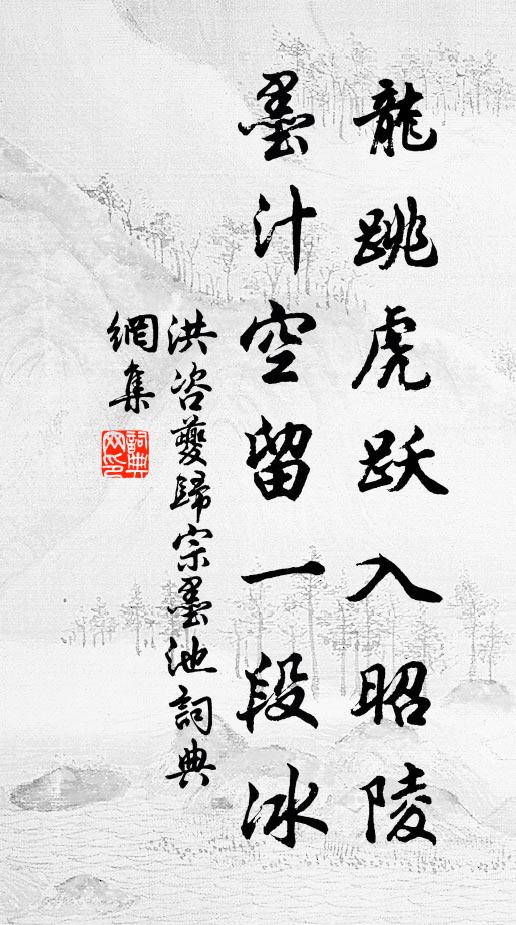 龍跳虎跃入昭陵
墨汁空留一段冰
洪咨夔歸宗墨池詞典
網集
詞典
网印